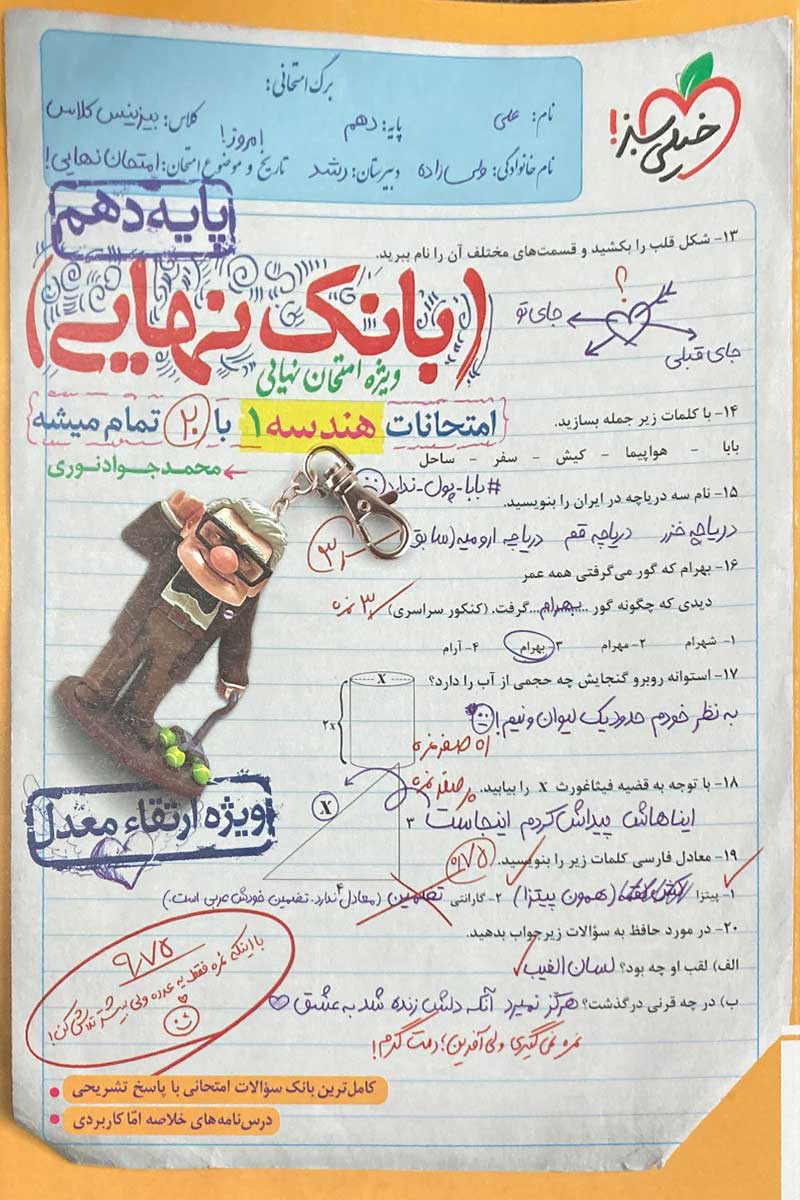 برگ امتحانی:
نام: علی
پایه: دهم
کلاس: بیزینس کلاس
نام خانوادگی: ولی زاده
دبیرستان: رشد
تاریخ و موضوع امتحان: امتحان نهایی!
امروز!
خیلی سبز!
پایه دهم
۱۳- شکل قلب را بکشید و قسمت‌های مختلف آن را نام ببرید.
(بانک نهایی)
؟
جای تو
جای قبلی
ویژه امتحان نهایی
امتحانات هندسه ۱ با ۲۰ تمام میشه
محمدجواد نوری
۱۴- با کلمات زیر جمله بسازید.
بابا - هواپیما - کیش - سفر - ساحل
#بابا-پول-ندارد
۱۵- نام سه دریاچه در ایران را بنویسید.
دریاچه خزر دریاچه قم دریاچه ارومیه (سابق
۱۶- بهرام که گور می‌گرفتی همه عمر
دیدی که چگونه گور ...بهرام... گرفت. (کنکور سراسری) ۳ نمره
۱- شهرام ۲- مهرام ۳- بهرام ۴- آرام
۱۷- استوانه روبرو گنجایش چه حجمی از آب را دارد؟
X
۲x
به نظر خودم حدود یک لیوان و نیم!
صفر نمره
۱۸- با توجه به قضیه فیثاغورث X را بیابید.
صفر نمره
ایناهاش پیداش کردم اینجاست
X
۳
۴
ویژه ارتقاء معدل
۱۹- معادل فارسی کلمات زیر را بنویسید.
۰/۷۵
۱- پیتزا (همون پیتزا) ۲- گارانتی تضمین (معادل ندارد. تضمین خودش عربی است.)
۲۰- در مورد حافظ به سؤالات زیر جواب بدهید.
الف) لقب او چه بود؟ لسان الغیب
ب) در چه قرنی درگذشت؟ هرگز نمیرد آنکه دلش زنده شد به عشق
نمره نمی‌گیری ولی آفرین؛ دمت گرم!
۹/۷۵
با اینکه نمره فقط یه عدده ولی بیشتر تلاش کن!
کامل‌ترین بانک سؤالات امتحانی با پاسخ تشریحی
درس‌نامه‌های خلاصه امّا کاربردی